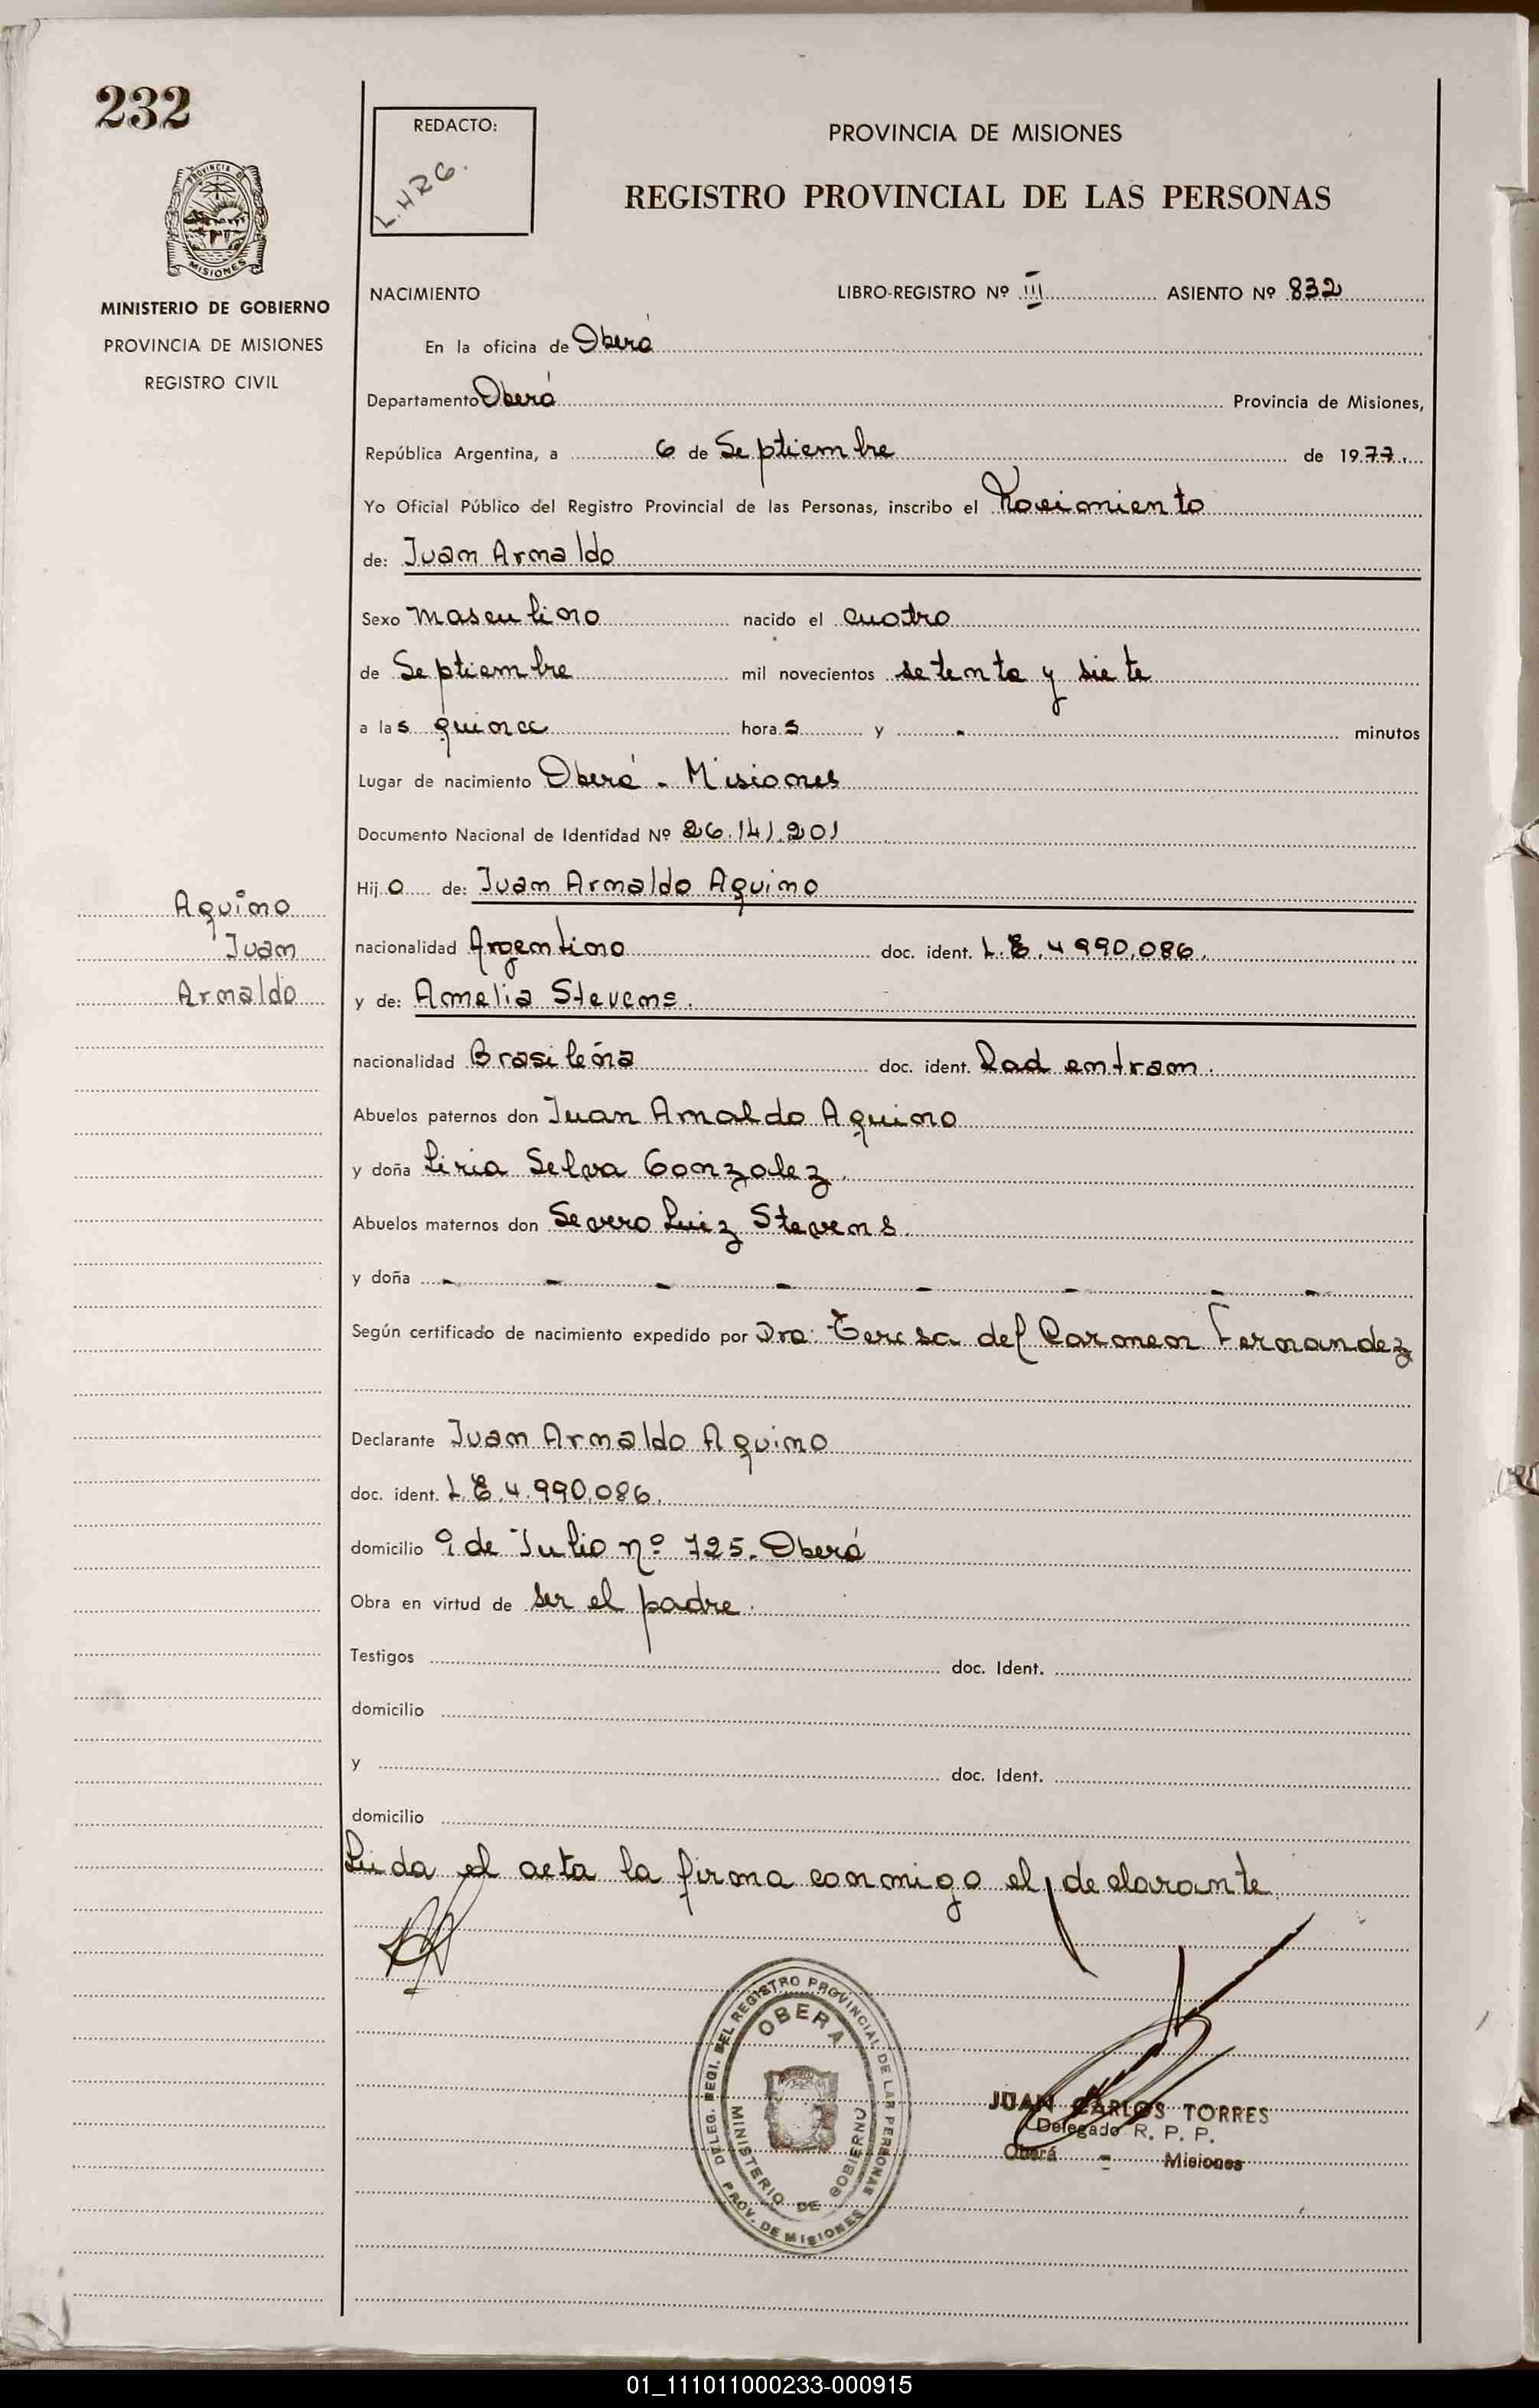 232
REDACTO:
L.H.R.G.
PROVINCIA DE MISIONES
REGISTRO PROVINCIAL DE LAS PERSONAS
PROVINCIA DE
MISIONES
MINISTERIO DE GOBIERNO
PROVINCIA DE MISIONES
REGISTRO CIVIL
NACIMIENTO LIBRO-REGISTRO Nº III ASIENTO Nº 832
En la oficina de Oberá
Departamento Oberá Provincia de Misiones,
República Argentina, a 6 de Septiembre de 1977.
Yo Oficial Público del Registro Provincial de las Personas, inscribo el Nacimiento
de: Juan Arnaldo
Sexo Masculino nacido el cuatro
de Septiembre mil novecientos setenta y siete
a las quince horas y - minutos
Lugar de nacimiento Oberá - Misiones
Documento Nacional de Identidad Nº 26.141.201
Hijo de: Juan Arnaldo Aquino
Aquino
Juan
Arnaldo
nacionalidad Argentino doc. ident. L.E. 4990.086.
y de: Amelia Stevens.
nacionalidad Brasileña doc. ident. Rad en tram.
Abuelos paternos don Juan Arnaldo Aquino
y doña Liria Selva Gonzalez.
Abuelos maternos don Severo Luiz Stevens.
y doña - - - - - - - -
Según certificado de nacimiento expedido por Dra: Teresa del Carmen Fernandez
Declarante Juan Arnaldo Aquino
doc. ident. L.E. 4.990.086.
domicilio 9 de Julio nº 725. Oberá
Obra en virtud de ser el padre.
Testigos doc. Ident.
domicilio
y doc. Ident.
domicilio
Leida el acta la firma conmigo el declarante
DELEG. REGI. DEL REGISTRO PROVINCIAL DE LAS PERSONAS
OBERA
MINISTERIO DE GOBIERNO
PROV. DE MISIONES
JUAN CARLOS TORRES
Delegado R. P. P.
Oberá - Misiones
01_111011000233-000915